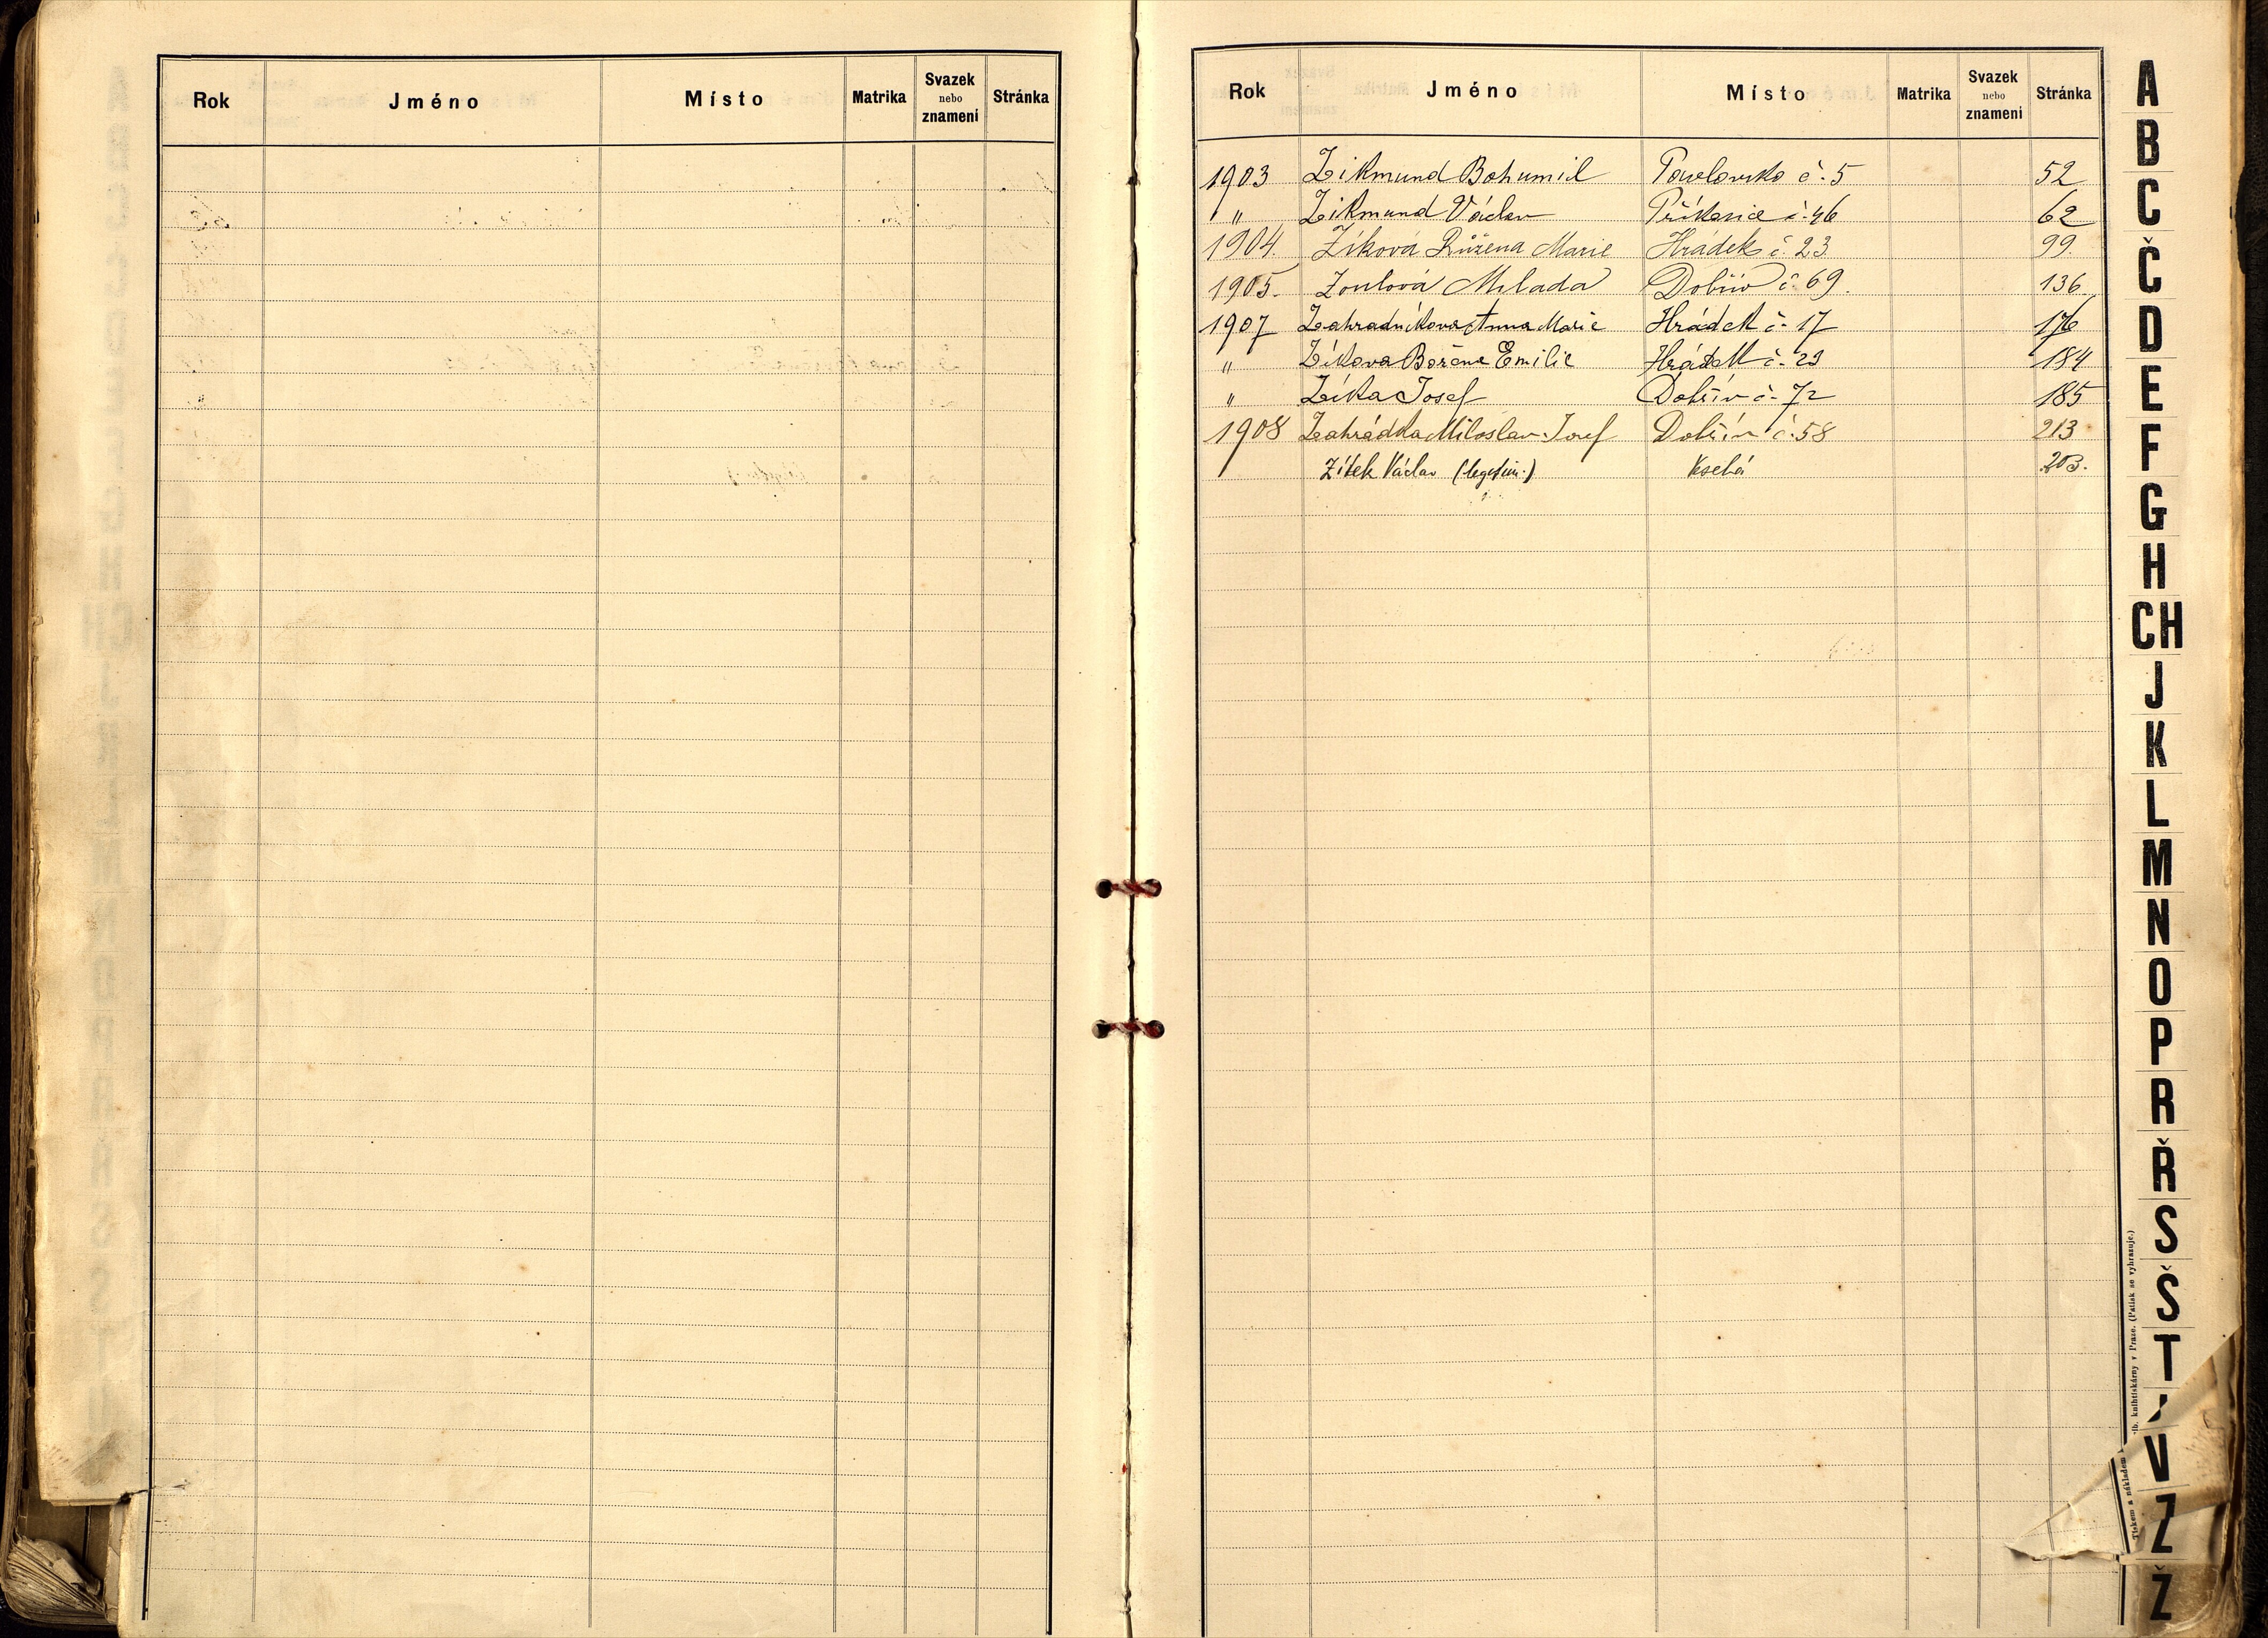 Rok Jméno Místo Matrika Svazek nebo znamení Stránka
Rok Jméno Místo Matrika Svazek nebo znamení Stránka
1903 Zikmund Bohumil Pavlovsko č. 5 52
" Zikmund Václav Příkosice č. 46 62
1904. Zíková Růžena Marie Hrádek č. 23. 99.
1905. Zoulová Milada Dobřív č. 69. 136.
1907 Zahradníkova Anna Marie Hrádek č. 17 176
" Zíkova Božena Emilie Hrádek č. 23 184
" Zíka Josef Dobřív č. 72 185
1908 Zahrádka Miloslav Josef Dobřív č. 58 213
Zítek Václav (legitim.) 203.
A
B
C
Č
D
E
F
G
H
CH
J
K
L
M
N
O
P
R
Ř
S
Š
T
V
Z
Ž
Tiskem a nákladem knihtiskárny v Praze. (Patisk se vyhrazuje.)